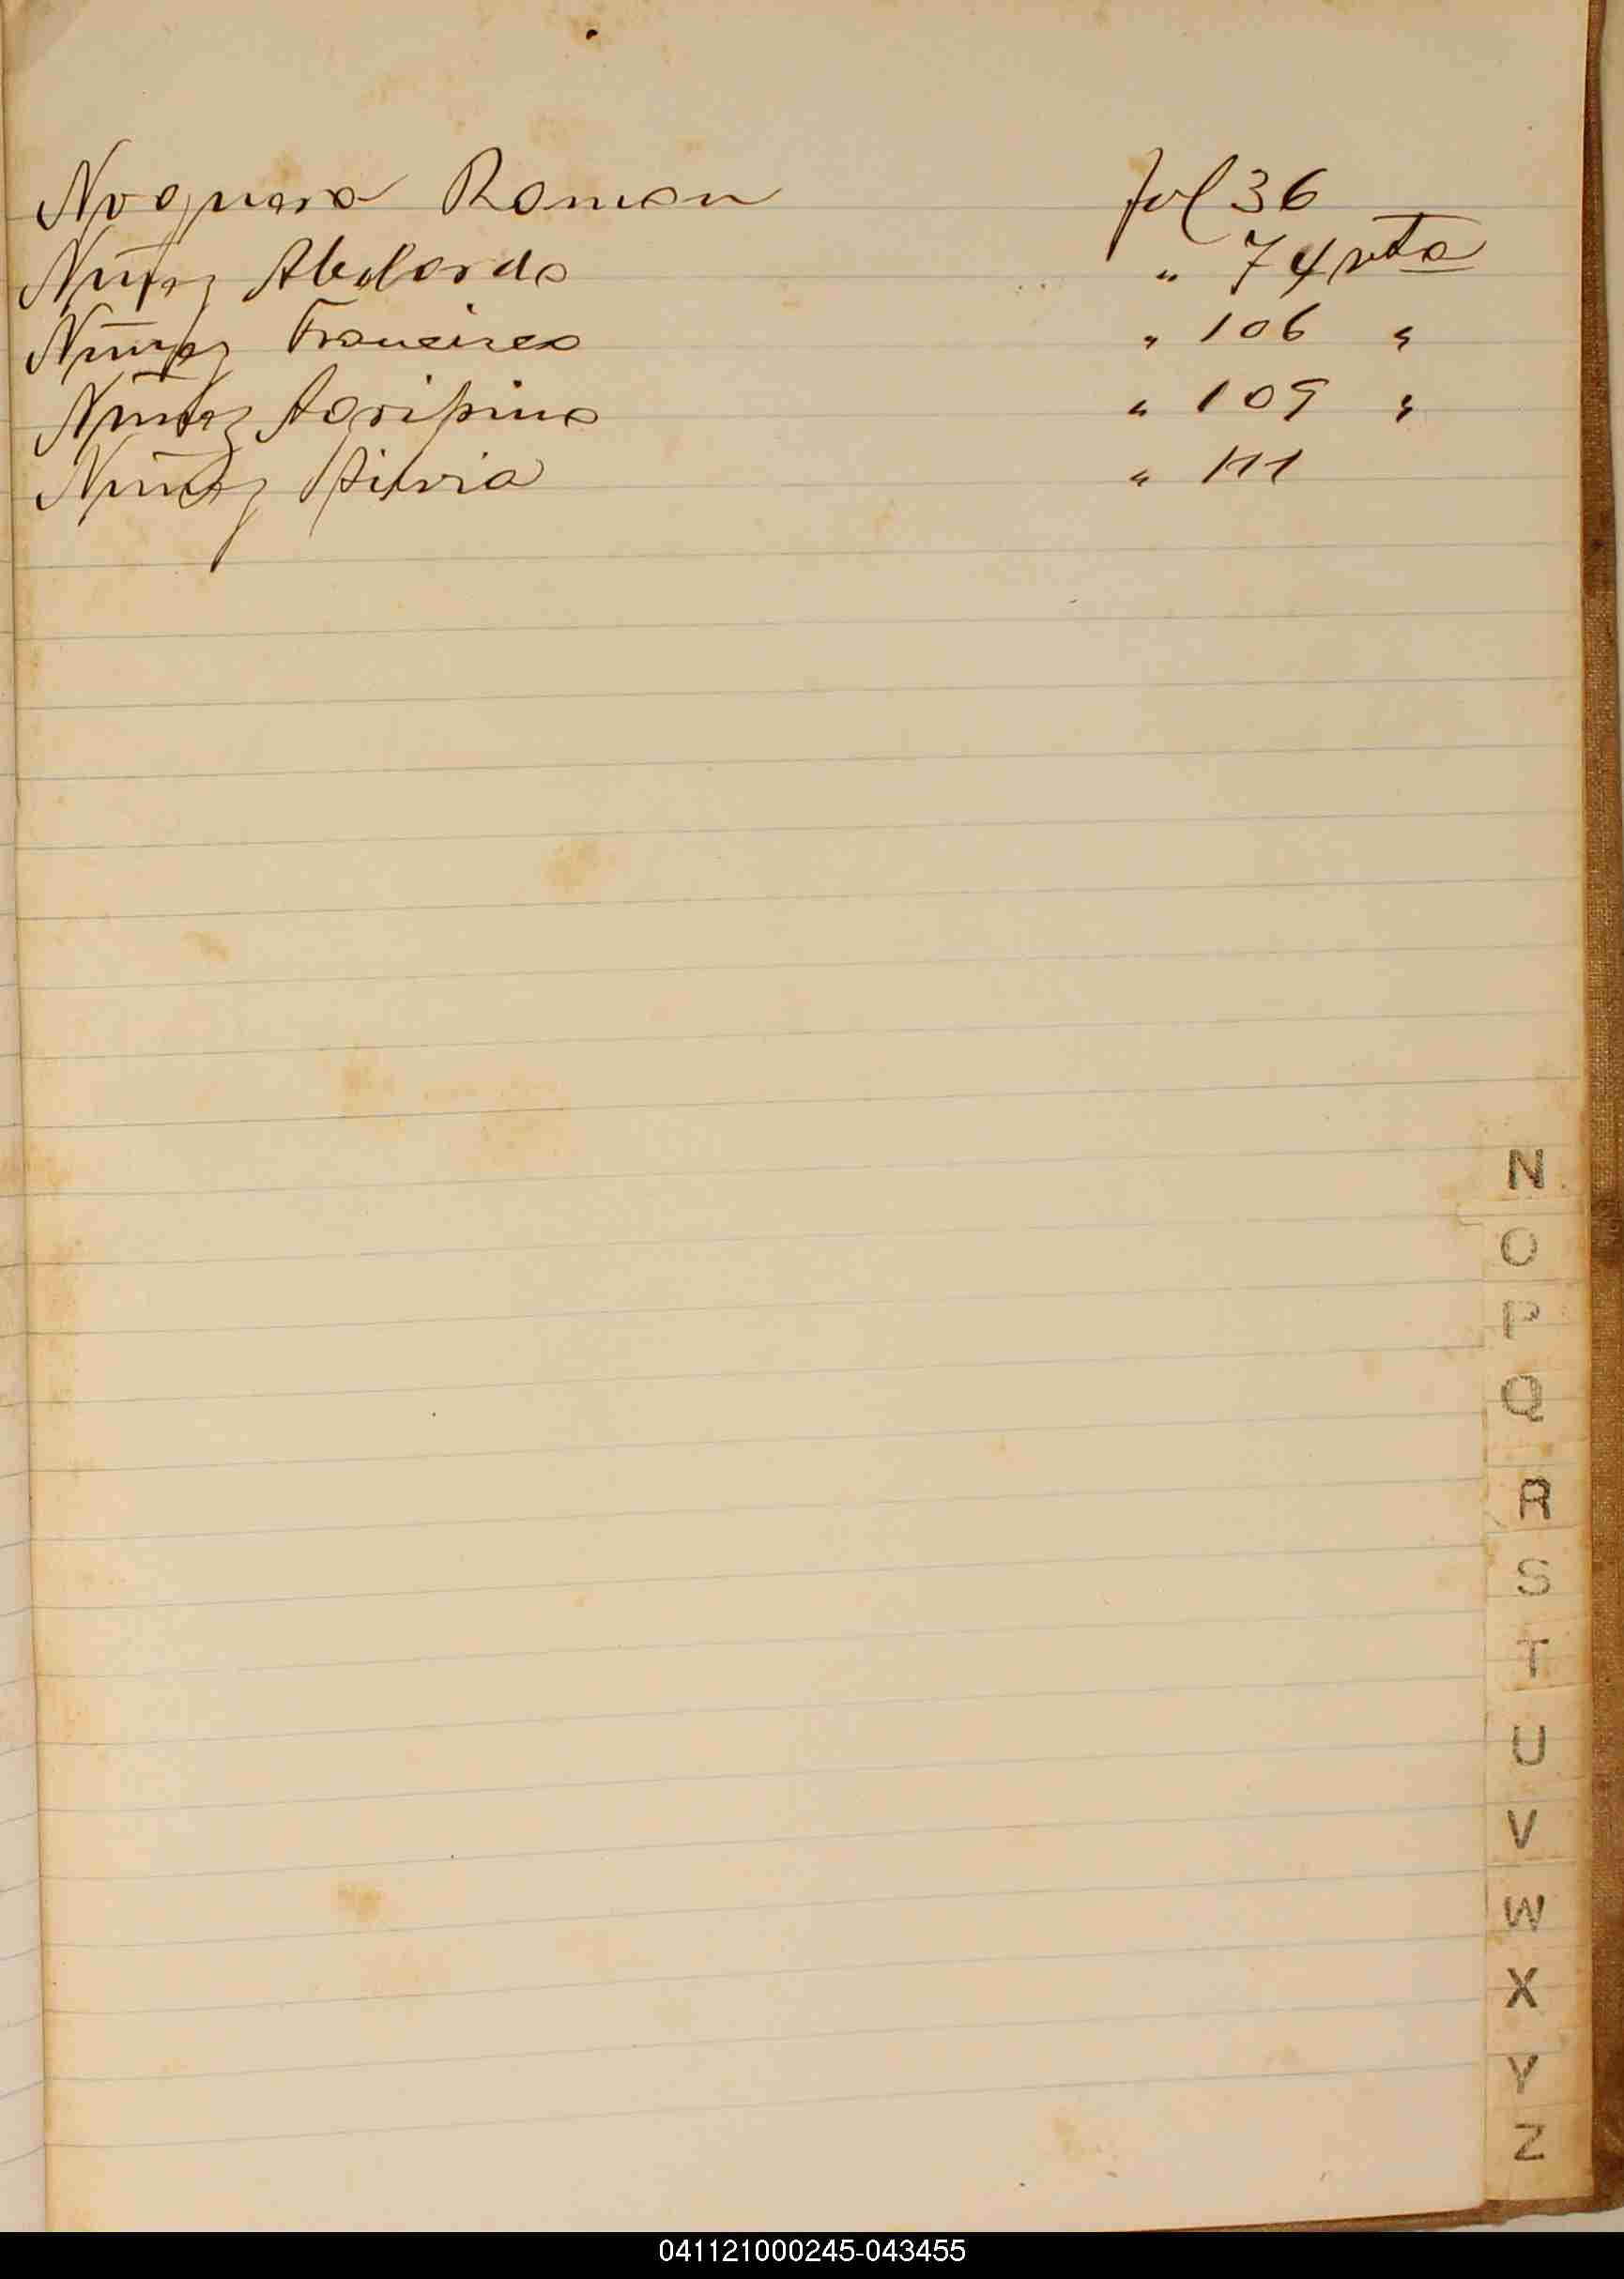 Noguera Roman Fol 36
Nuñez Abelardo " 74 vta
Nuñez Francisco " 106 "
Nuñez Agripina " 109 "
Nuñez Silvia " 111
N
O
P
Q
R
S
T
U
V
W
X
Y
Z
041121000245-043455